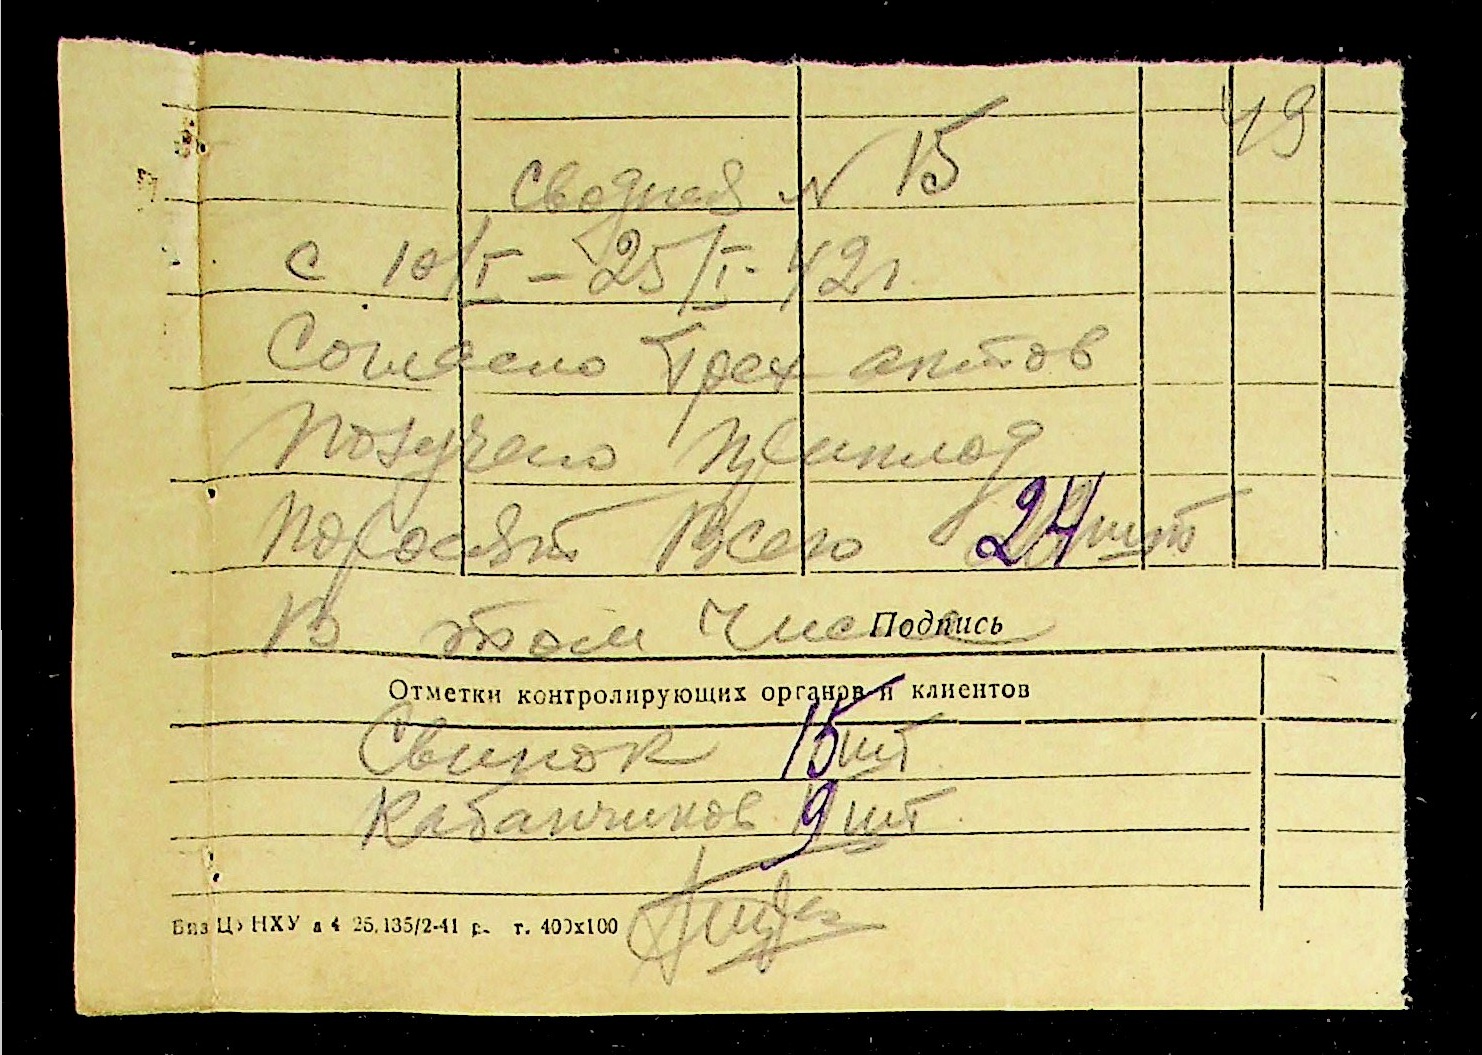 49
Сводная N 15
с 10/I - 25/I - 42 г
Согласно трех актов
Получено приплод
Поросят всего 24 шт
В том числе
Подпись
Отметки контролирующих органов и клиентов
Свинок 15 шт
Кабанчиков 9 шт
25.135/2-41 г. т. 400х100